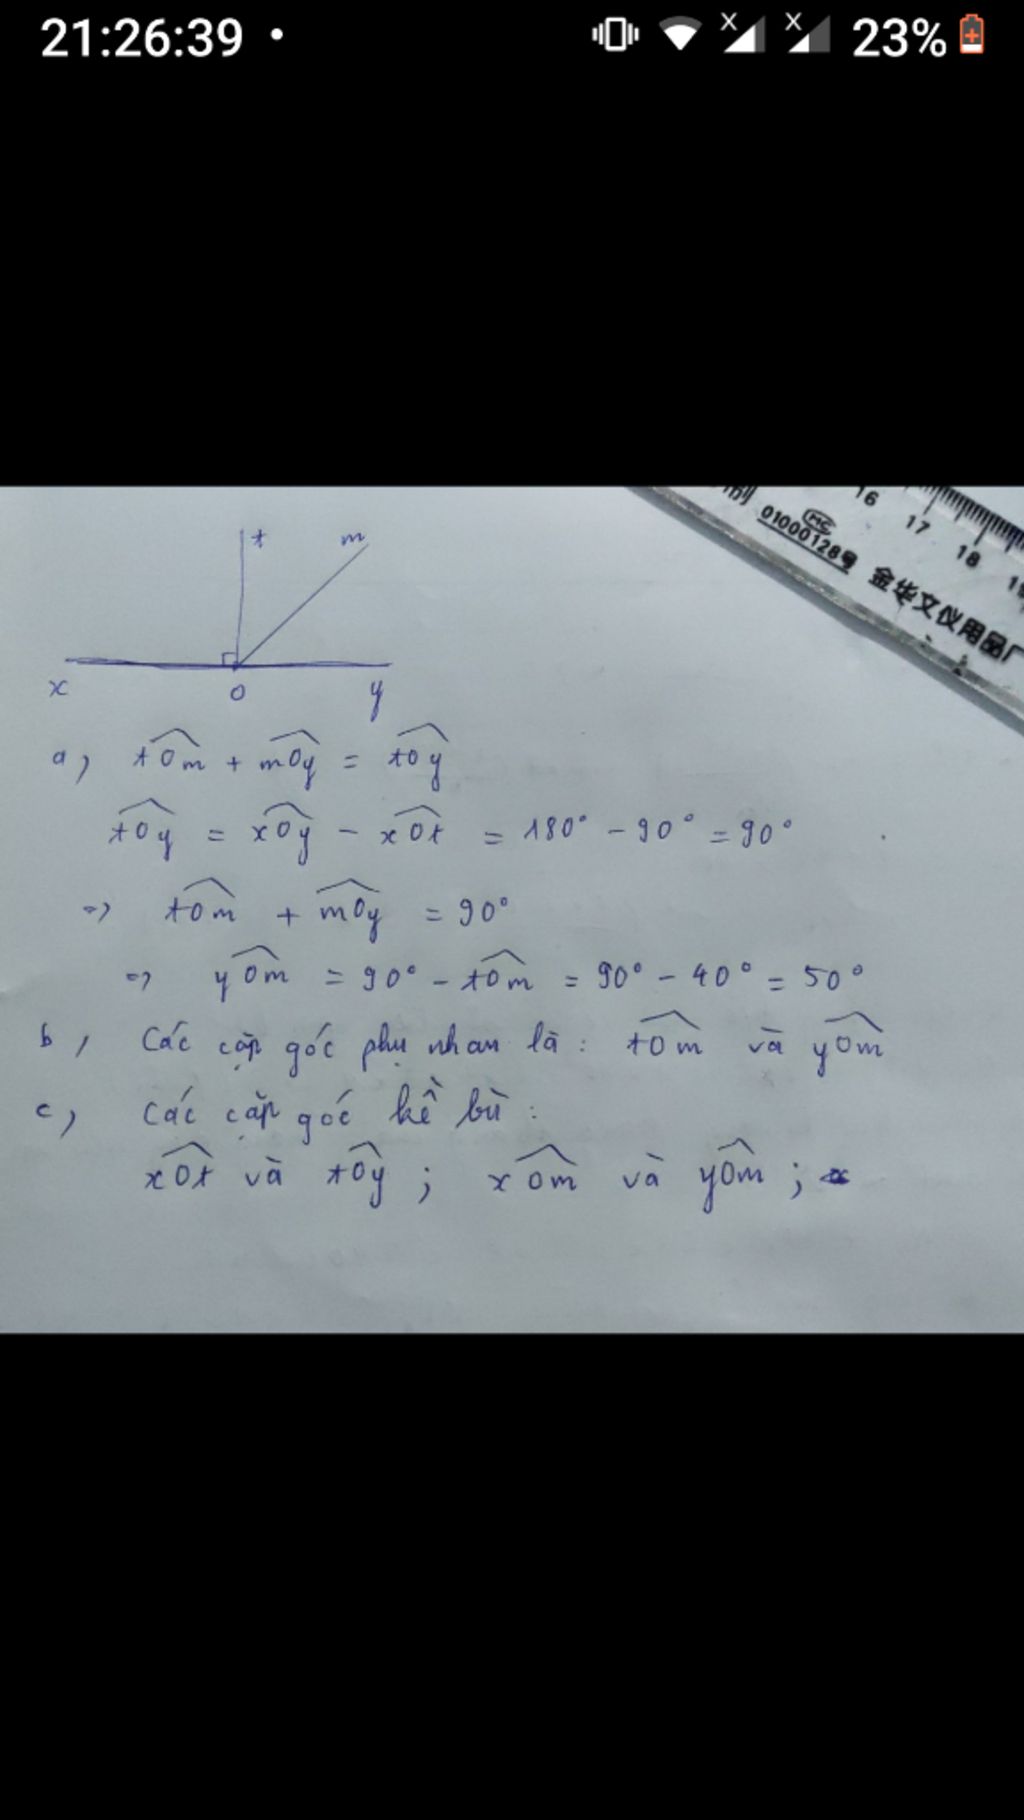 21:26:39 • X X 23%
16 17 18 19
MC
01000128号
金华文仪用品厂
t m
x O y
a) tOm + mOy = tOy
tOy = xOy - xOt = 180° - 90° = 90°
=> tOm + mOy = 90°
=> yOm = 90° - tOm = 90° - 40° = 50°
b, Các cặp góc phụ nhau là: tOm và yOm
c) Các cặp góc kề bù:
xOt và tOy ; xOm và yOm ;